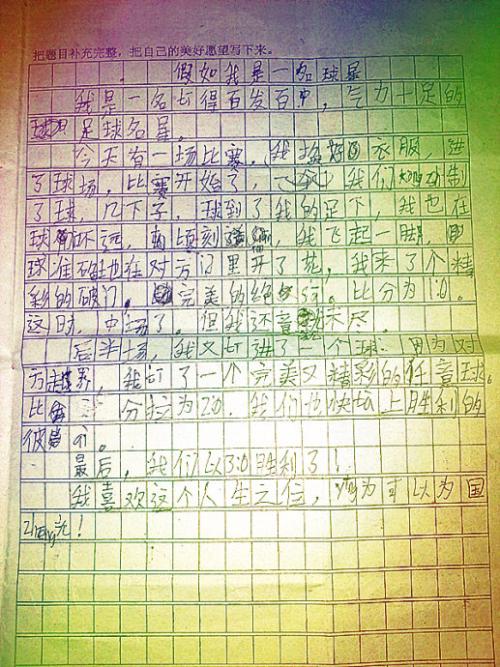 把题目补充完整，把自己的美好愿望写下来。
假如我是一名球星
我是一名打得百发百中，气力十足的
球 足球名星。
今天有一场比赛，我换好衣服，进
了球场，比赛开始了，我们 制
了球，几下子，球到了我的足下，我也在
球 不远，顷刻 ，我飞起一脚，
球准确地在对方门里开了花，我来了个精
彩的破门。完美的绝 。比分为1:0。
这时，中场了。但我还意 未尽。
后半场，我又打进了一个球：因为对
方越界，我打了一个完美又精彩的任意球。
比 分拉为2:0，我们也快站上胜利的
彼岸了。
最后，我们以3:0胜利了！
我喜欢这个人生之位，因为可以为国
zheng光！